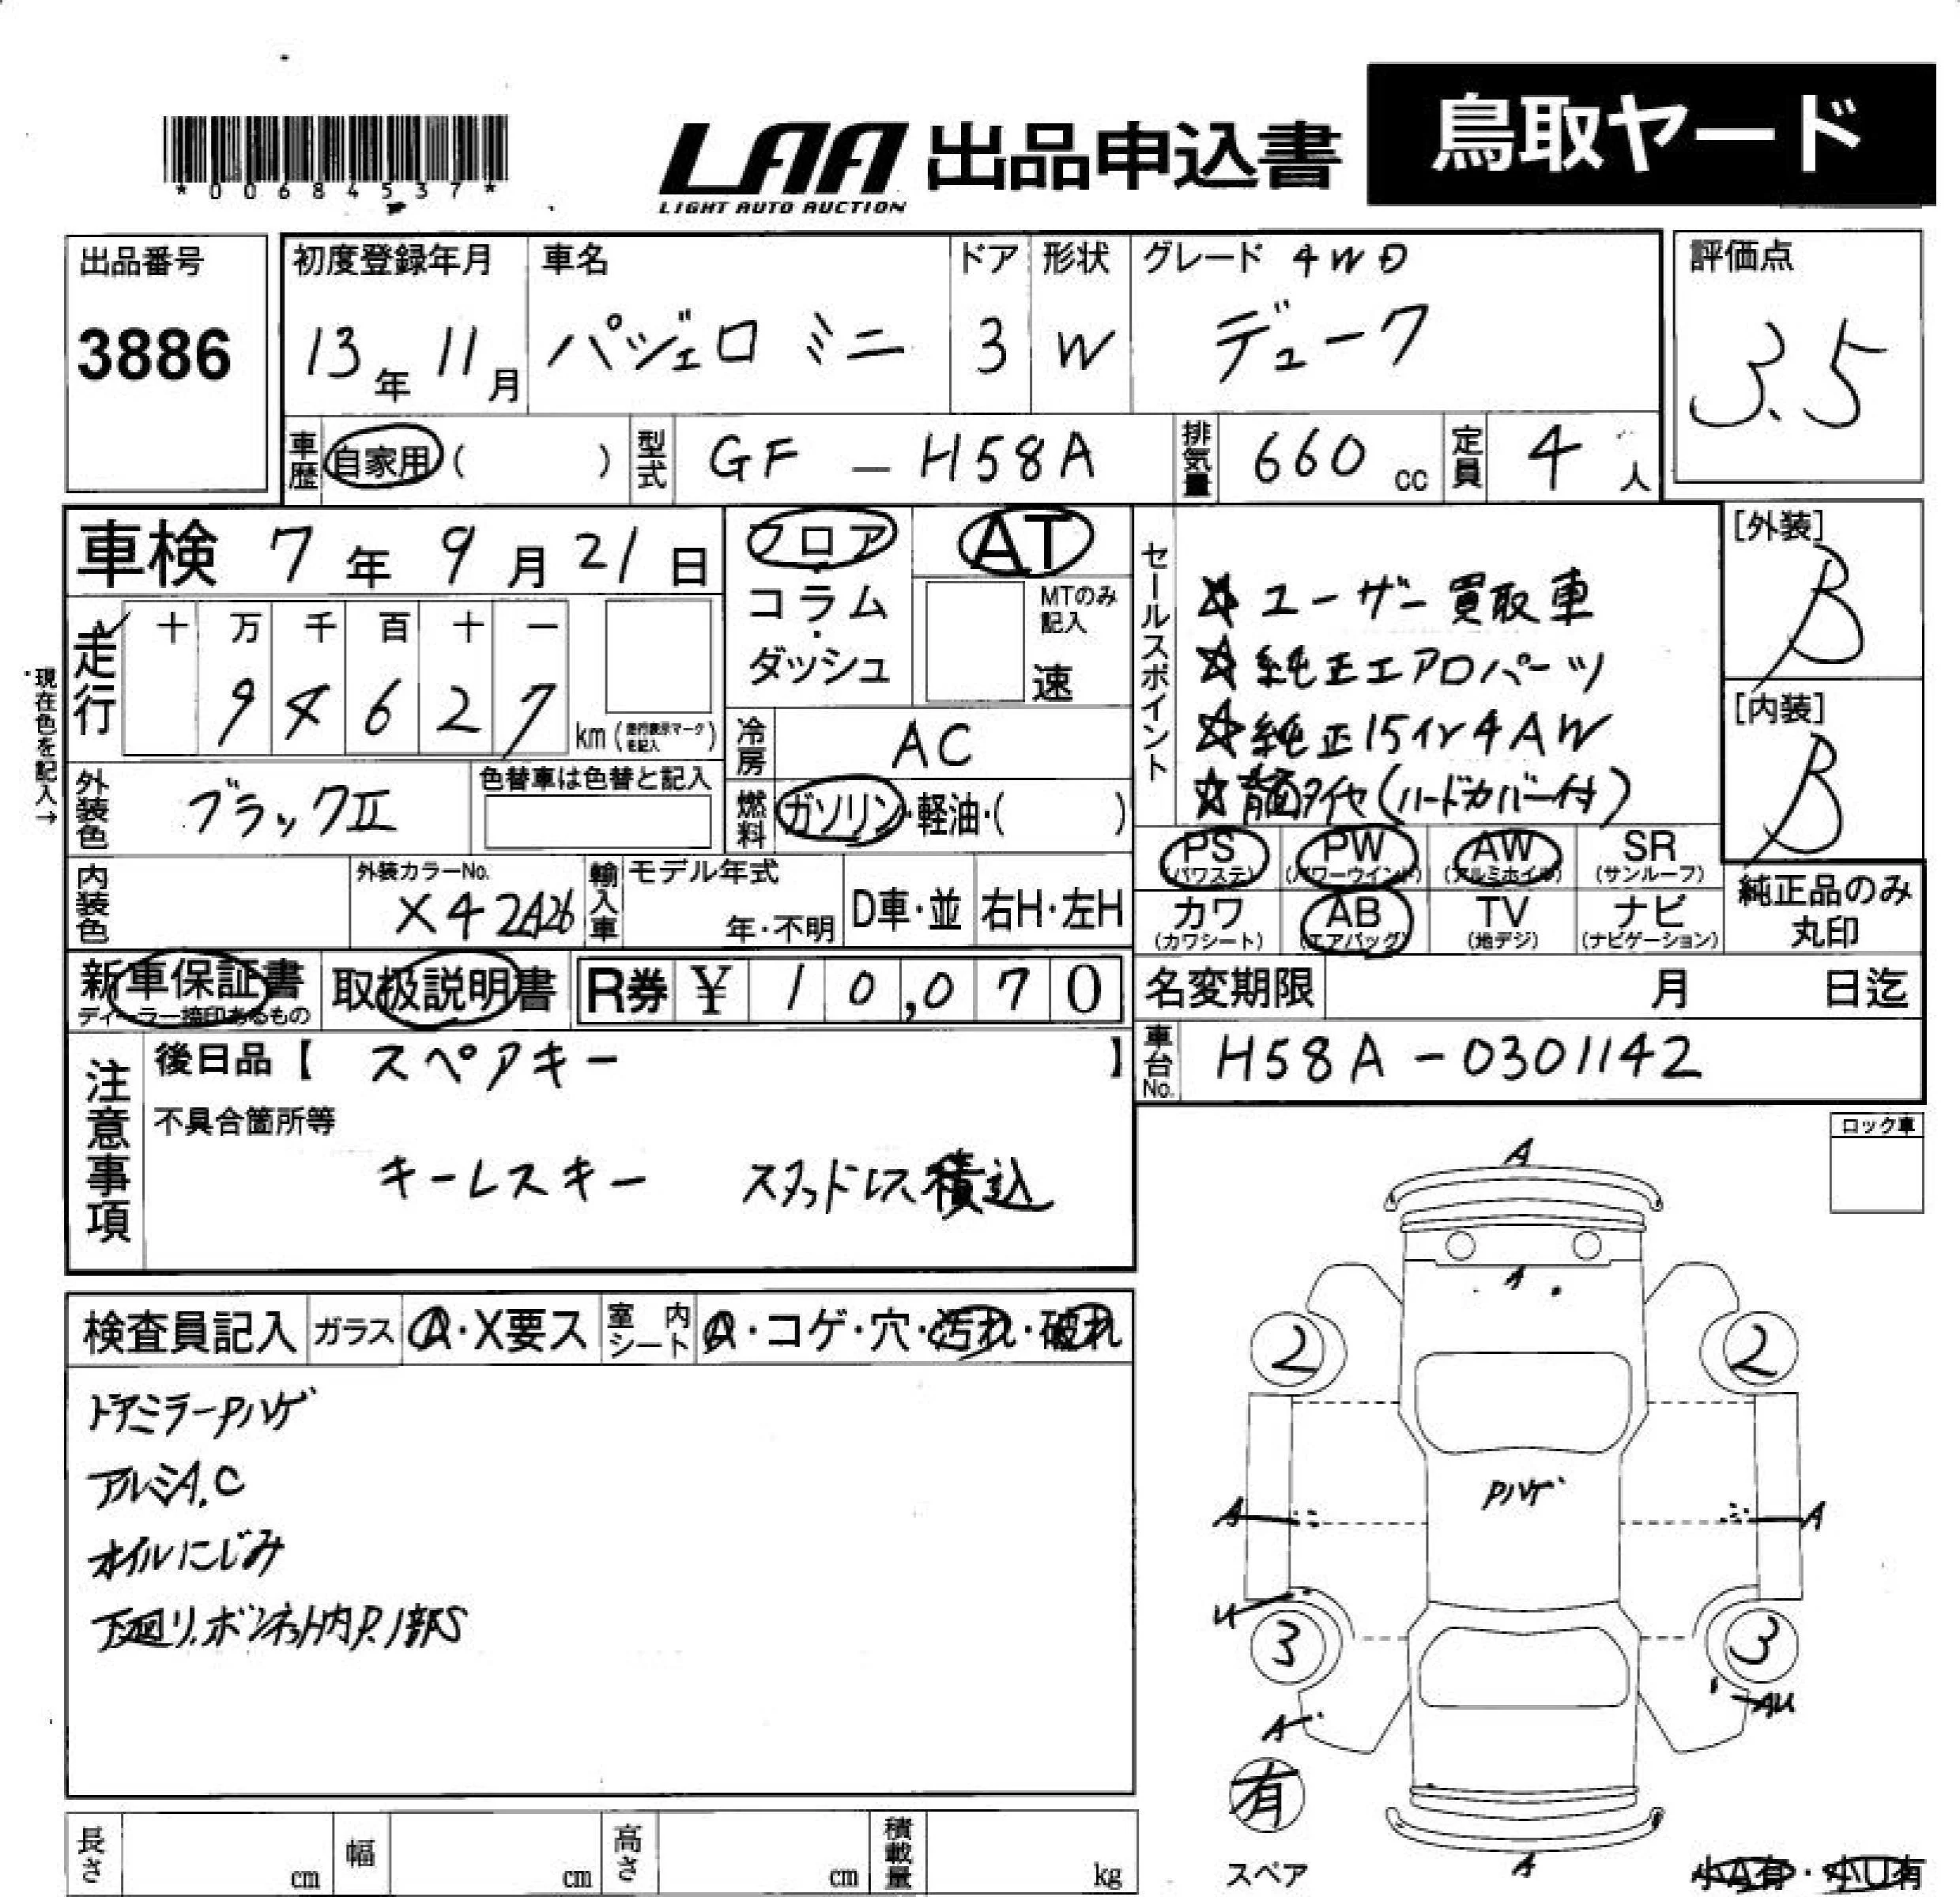 *00684537*
LAA 出品申込書 鳥取ヤード
LIGHT AUTO AUCTION
出品番号 初度登録年月 車名 ドア 形状 グレード 4WD 評価点
3886 13年 11月 パジェロミニ 3 W デューク 3.5
車歴 自家用( ) 型式 GF - H58A 排気量 660 cc 定員 4 人
車検 7年 9月 21日 フロア・コラム・ダッシュ AT
MTのみ記入 速
セールスポイント
☆ユーザー買取車
☆純正エアロパーツ
☆純正15インチAW
☆背面タイヤ(ハードカバー付)
[外装] B
[内装] B
現在色を記入→
走行 十 万 千 百 十 一
9 4 6 2 7 km (走行表示マークを記入)
冷房 AC
外装色 ブラックII 色替車は色替と記入
燃料 ガソリン・軽油・( )
内装色 外装カラーNo. X42 輸入車 モデル年式 年・不明 D車・並 右H・左H
PS (パワステ) PW (パワーウインド) AW (アルミホイル) SR (サンルーフ)
カワ (カワシート) AB (エアバッグ) TV (地デジ) ナビ (ナビゲーション)
純正品のみ丸印
新車保証書 ディーラー捺印あるもの 取扱説明書 R券 ¥ 10,070
名変期限 月 日迄
車台No. H58A-0301142
注意事項
後日品【 スペアキー 】
不具合箇所等
キーレスキー スタッドレス積込
ロック車
検査員記入 ガラス A・X要ス 室内シート A・コゲ・穴・汚れ・破れ
ドアミラーPハゲ
アルミA.C
オイルにじみ
下廻り.ボンネット内P.1部S
A
A
2 2
Pハゲ
A A
U
3 3
A AU
有
スペア
A
小A有・小U有
長さ cm 幅 cm 高さ cm 積載量 kg